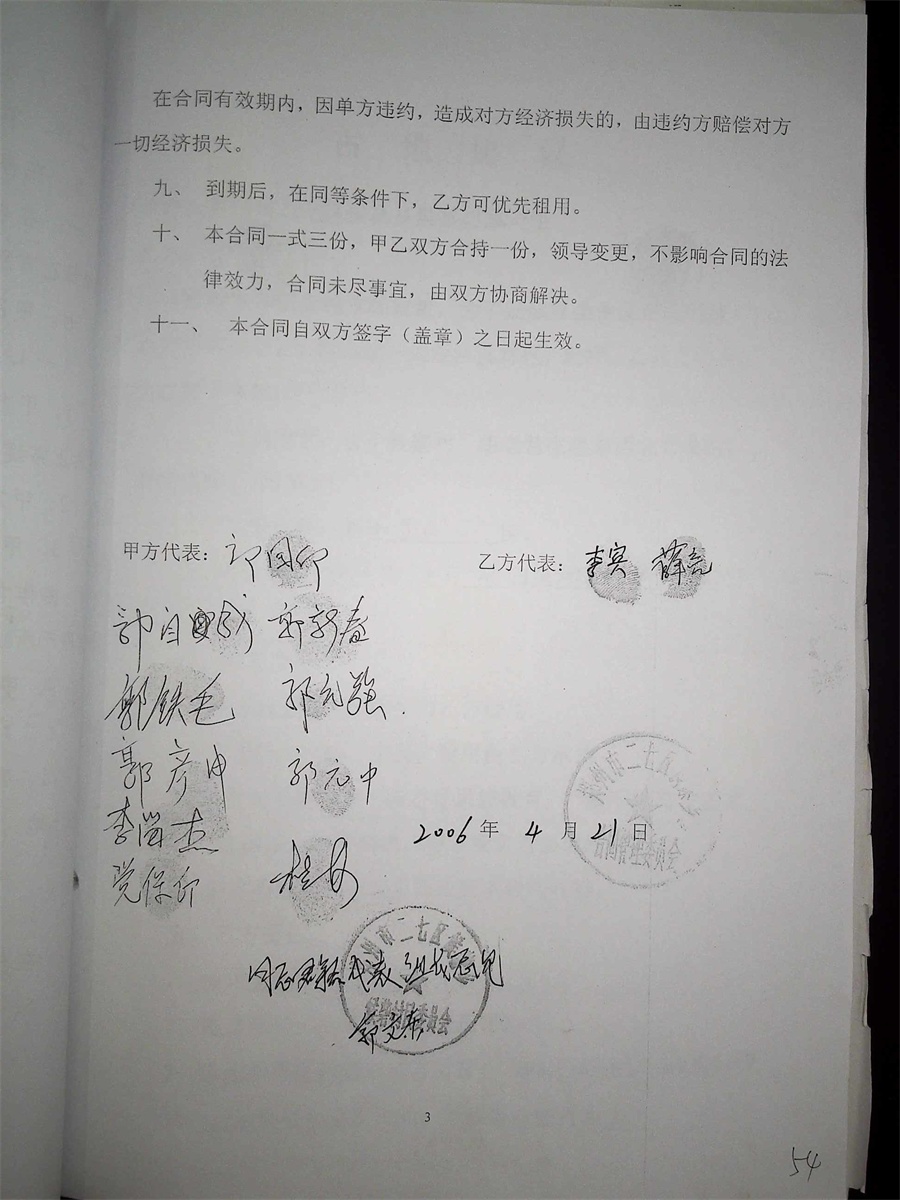 在合同有效期内，因单方违约，造成对方经济损失的，由违约方赔偿对方
一切经济损失。
九、 到期后，在同等条件下，乙方可优先租用。
十、 本合同一式三份，甲乙双方合持一份，领导变更，不影响合同的法
律效力，合同未尽事宜，由双方协商解决。
十一、 本合同自双方签字（盖章）之日起生效。
甲方代表：
乙方代表：李宾 薛亮
郭新春
郭铁毛 郭元强
郭彦申 郭元中
2006 年 4 月 21 日
郑州市二七区
合同管理委员会
党保印
州市二七区
村民委员会
代表组
郭文东
3
54